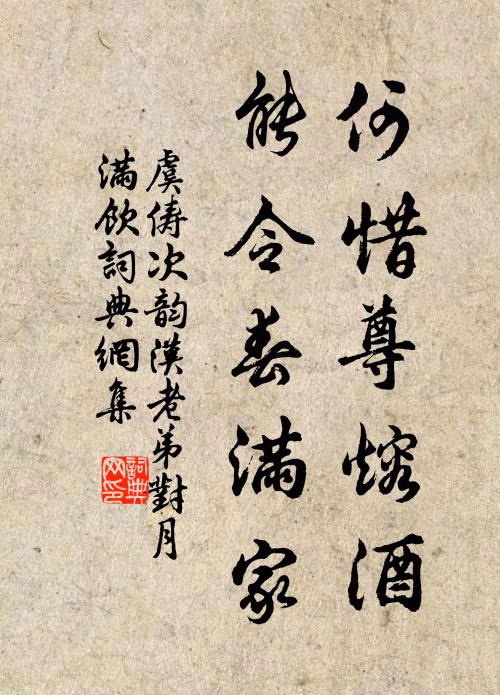 何惜尊熔酒
能令春满家
虞俦次韵漢老弟對月
满飲詞典網集
詞典網印